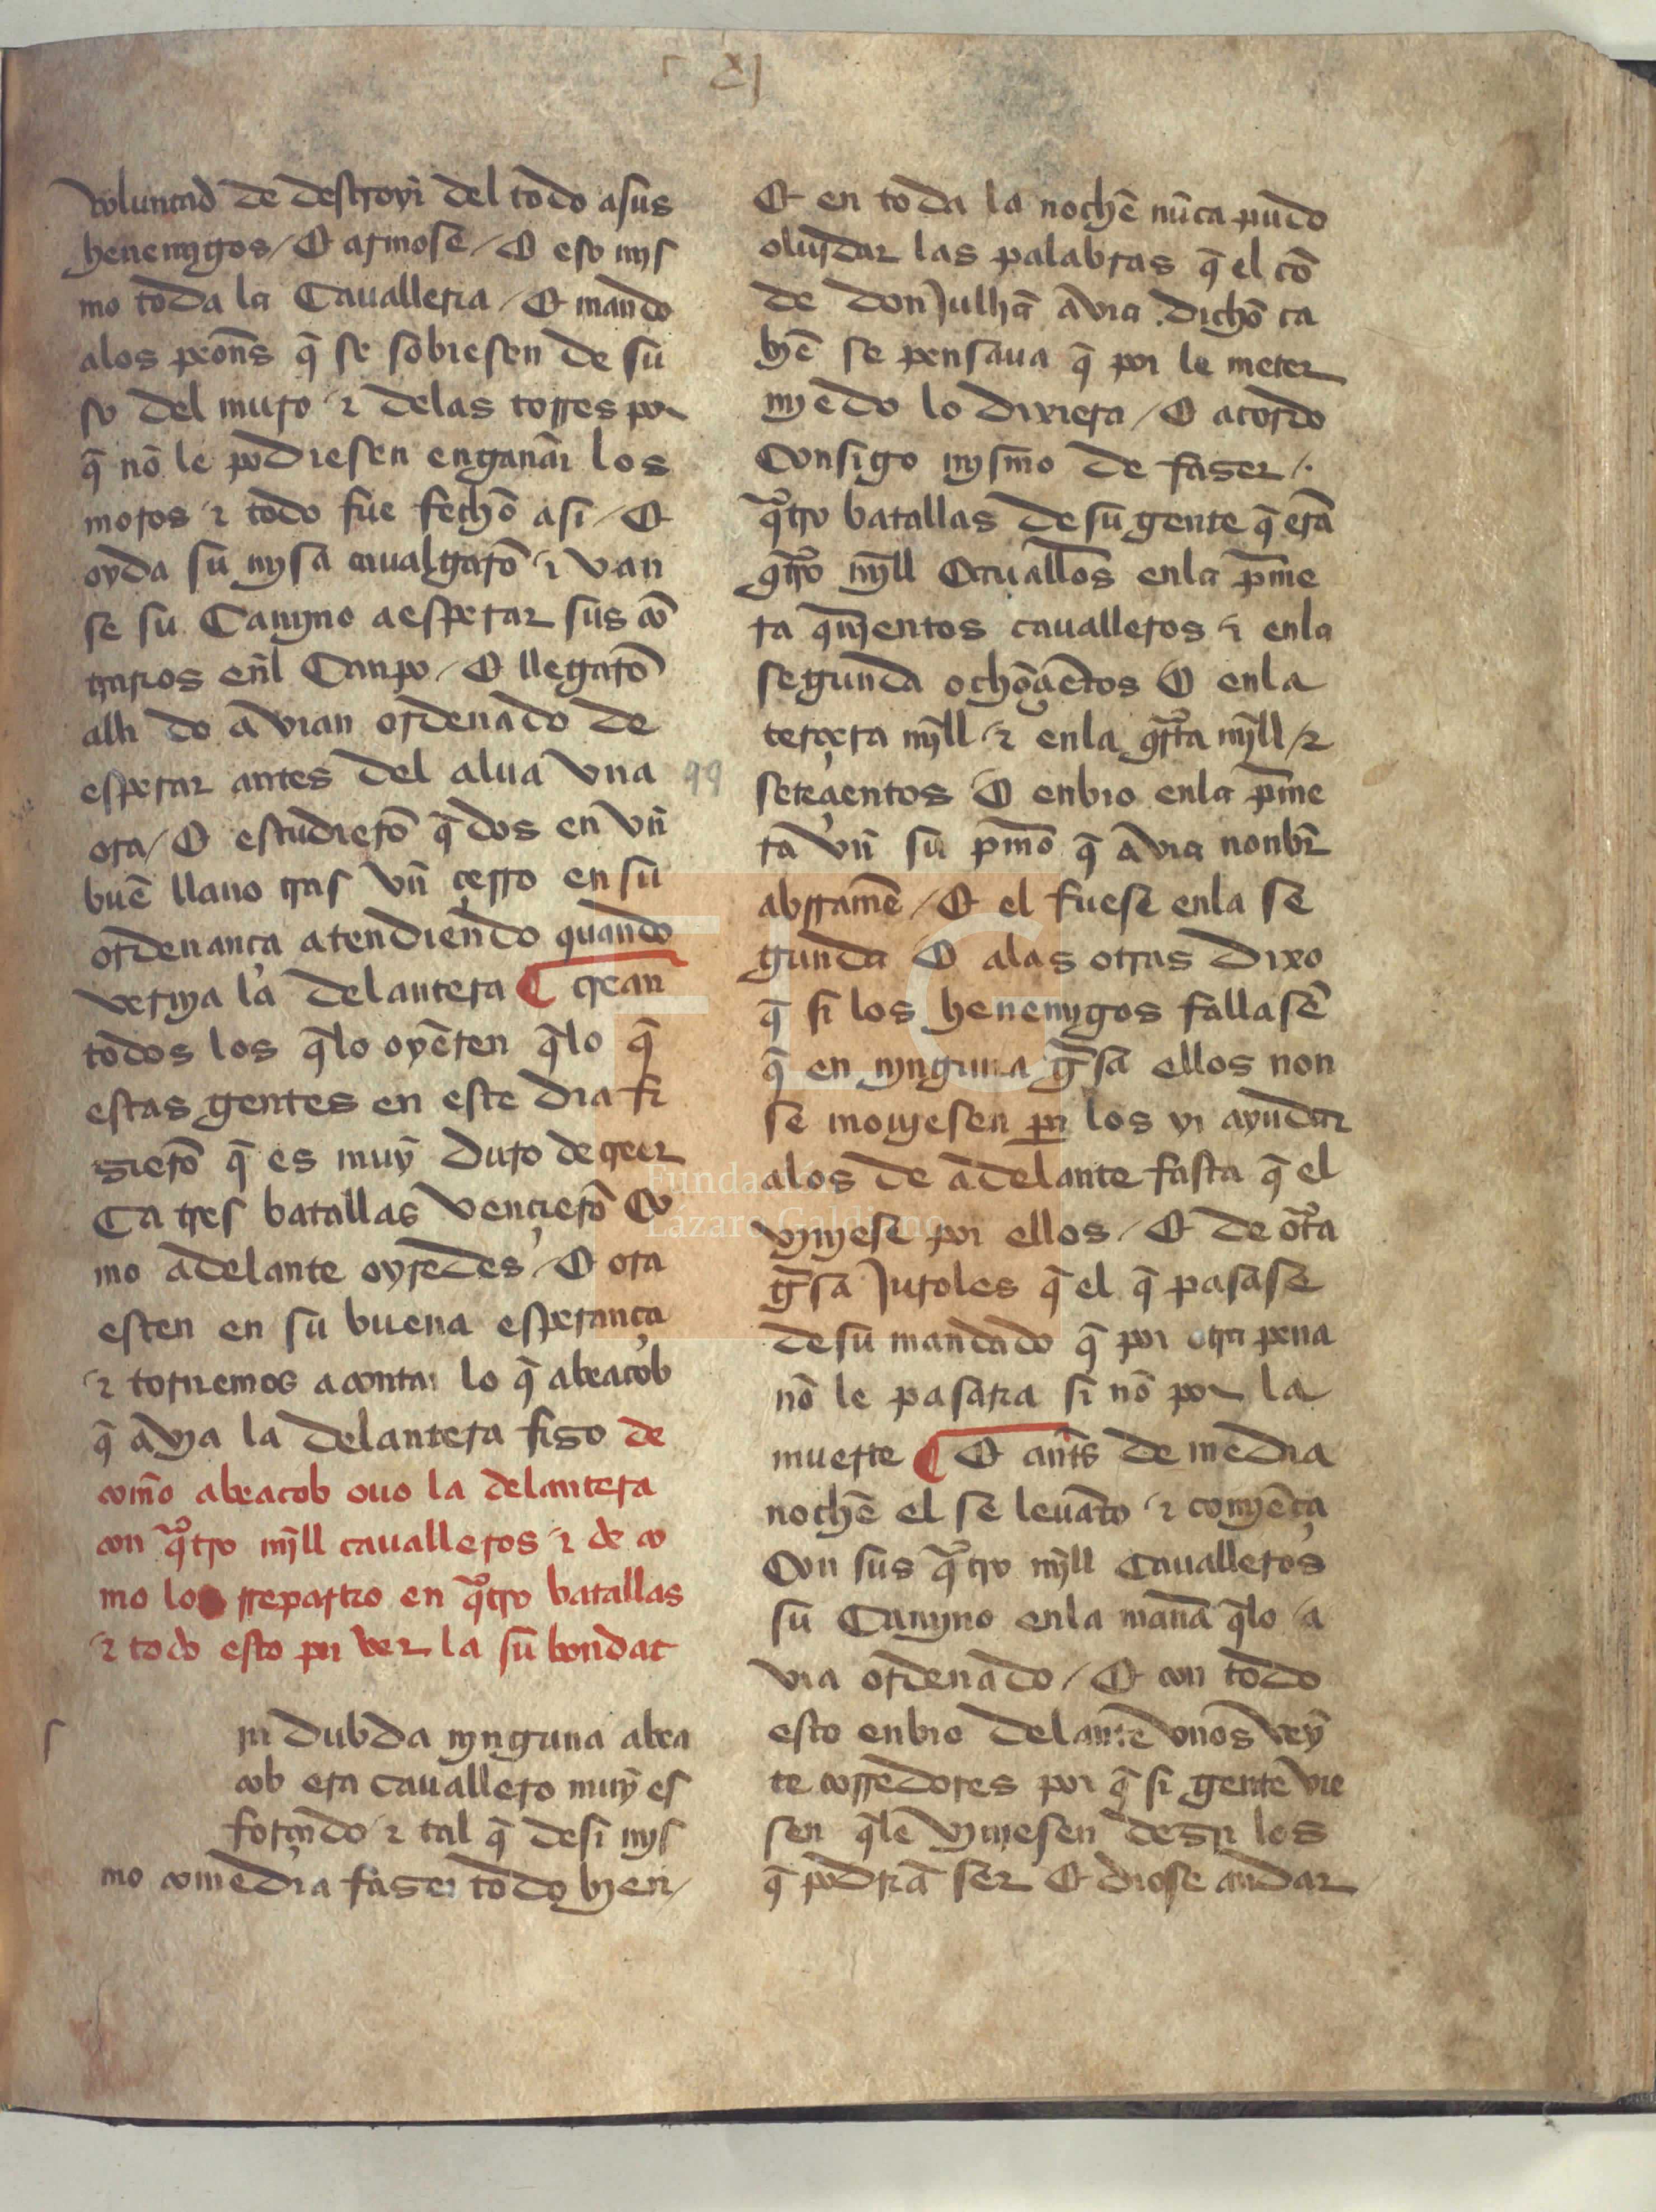 xl
voluntad de destroyr del todo a sus
henemygos / E armose / E eso mys
mo toda la Cauallería / E mando
alos peōns q̄ se sobiesen de su
so del muro / ⁊ delas torres por
q̄ nō le podiesen engañar los
moros ⁊ todo fue fecho asi / E
oyda su mysa caualgarō ⁊ van
se su Camyno a esperar sus cō
trarios en̄l Canpo / E llegarō
alli do avian ordenado de
esperar antes del alua vna
ora / E estudierō q̄dos en vn̄
buē llano tras vn̄ çerro en su
ordenança atendiendo quando
vernya la delantera ¶ crean
todos los q̄lo oyērен q̄lo q̄
estas gentes en este dia fi
zierō q̄ es muy duro de creer
Ca tres batallas vençierō Co
mo adelante oyredes / E ora
esten en su buena esperança
⁊ tornemos a contar lo q̄ abeacob
q̄ avya la delantera fizo de
com̄o abeacob ouo la delantera
con q̄tro myll caualleros ⁊ de co
mo los rrepartio en q̄tro batallas
⁊ todo esto por ver la su bondat
s
in dubda nynguna abea
cob era cauallero muy es
forçado ⁊ tal q̄ desi mys
mo comedia fazer todo byen /
99
E en toda la noche nūca pudo
oluidar las palabras q̄ el cō
de don Julhā avia dicho ca
byē se pensaua q̄ por le meter
myedo lo dixiera / E acordo
Consigo mysmo de fazer /.
q̄tro batallas de su gente q̄ erā
q̄tro myll Cauallos enla p̄me
ra qnyentos caualleros ⁊ enla
segunda ochoçiētos E enla
terçera myll ⁊ enla q̄rta myll / ⁊
seteçientos E enbio enla p̄me
ra vn̄ su p̄mo q̄ avia nonbr̄
abrramē / E el fuese enla se
gunda E alas otras dixo
q̄ si los henemygos fallasē
q̄ en nynguna gⁱsa ellos non
se mouyesen por los yr ayudar
alos de adelante fasta q̄ el
vynyese por ellos / E de otra
gⁱsa Juroles q̄ el q̄ pasase
de su mandado q̄ por otra pena
nō le pasaria si nō por la
muerte ¶ E ant̄s de media
noche el se leuāto ⁊ comyēça
Con sus q̄tro myll Caualleros
su Camyno enla manā q̄lo a
via ordenado / E con todo
esto enbio delante vnos vey
te corredores por q̄ si gente vie
sen q̄le vynyesen dezir los
q̄ podriā ser E diose andar